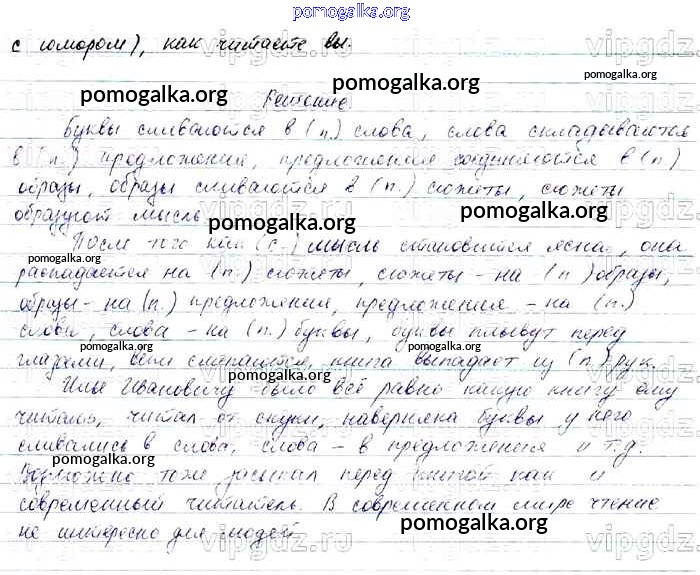 pomogalka.org
с юмором), как читаете вы.
Решение
Буквы сливаются в (п.) слова, слова складываются
в (п.) предложения, предложения соединяются в (п)
образы, образы сливаются в (п.) сюжеты, сюжеты
образуют мысль
После того как (с.) мысль становится ясна, она
распадается на (п.) сюжеты, сюжеты - на (п) образы,
образы - на (п.) предложения, предложение - на (п.)
слова, слова - на (п.) буквы, буквы плывут перед
глазами, веки смыкаются, книга выпадает из (п) рук.
Илье Ивановичу было всё равно какую книгу ему
читать, читал от скуки, наверняка буквы у него
сливались в слова, слова - в предложения и т.д.
Возможно тоже засыпал перед книгой как и
современный читатель. В современном мире чтение
не интересно для людей